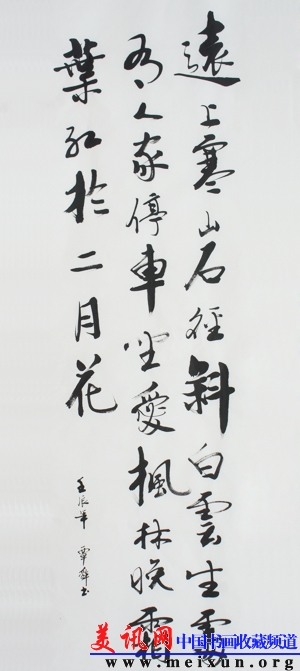 遠上寒山石徑斜白雲生處
有人家停車坐愛楓林晚霜
葉紅於二月花
壬辰年 覃書
美讯网 中国书画收藏频道
www.meixun.org